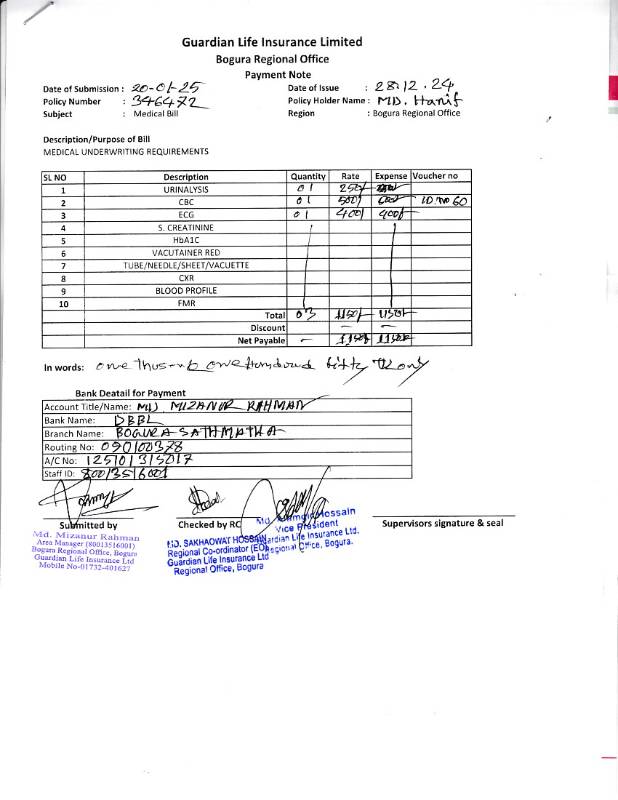 Guardian Life Insurance Limited
Bogura Regional Office
Payment Note
Date of Submission : 20-01-25 Date of Issue : 28.12.24
Policy Number : 346472 Policy Holder Name : MD. Hanif
Subject : Medical Bill Region : Bogura Regional Office
Description/Purpose of Bill
MEDICAL UNDERWRITING REQUIREMENTS
SL NO Description Quantity Rate Expense Voucher no
1 URINALYSIS 01 250/-
2 CBC 01 500/- ID. No 60
3 ECG 01 400/ 400/-
4 S. CREATININE
5 HbA1C
6 VACUTAINER RED
7 TUBE/NEEDLE/SHEET/VACUETTE
8 CXR
9 BLOOD PROFILE
10 FMR
Total 03 1150/- 1150/-
Discount - -
Net Payable - 1150/- 1150/-
In words: one
Bank Deatail for Payment
Account Title/Name: MD MIZANUR RAHMAN
Bank Name: DBBL
Branch Name: BOGURA SATHMATHA
Routing No: 090100378
A/C No: 125701315017
Staff ID: 80013516001
Submitted by Checked by RC Supervisors signature & seal
Md. Mizanur Rahman
Area Manager (80013516001)
Bogura Regional Office, Bogura
Guardian Life Insurance Ltd
Mobile No-01732-401627
MD. SAKHAOWAT HOSSAIN
Regional Co-ordinator (EO)
Guardian Life Insurance Ltd
Regional Office, Bogura
Md. Hossain
Vice President
Guardian Life Insurance Ltd.
Regional Office, Bogura.